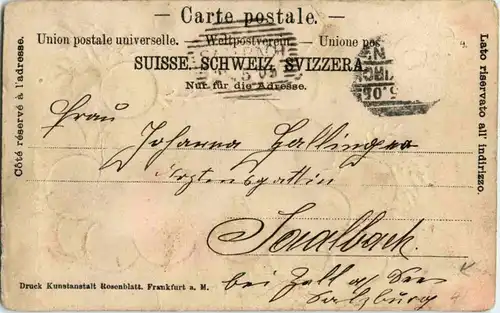 — Carte postale. —
Union postale universelle. — Weltpostverein. — Unione pos
SUISSE. SCHWEIZ. SVIZZERA.
Nur für die Adresse.
Côté réservé à l'adresse.
Lato riservato all' indirizzo.
Frau Johanna Hallinger
Arztensgattin
Saalbach.
bei Zell a/ See
Salzburg
Druck Kunstanstalt Rosenblatt. Frankfurt a. M.